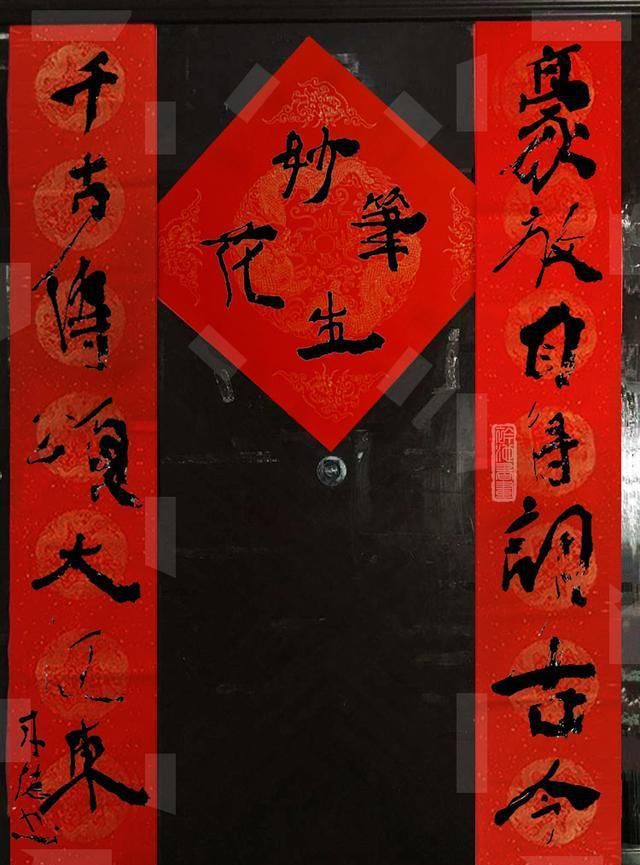 豪放自得調古今
妙筆生花
千古傳頌大江東